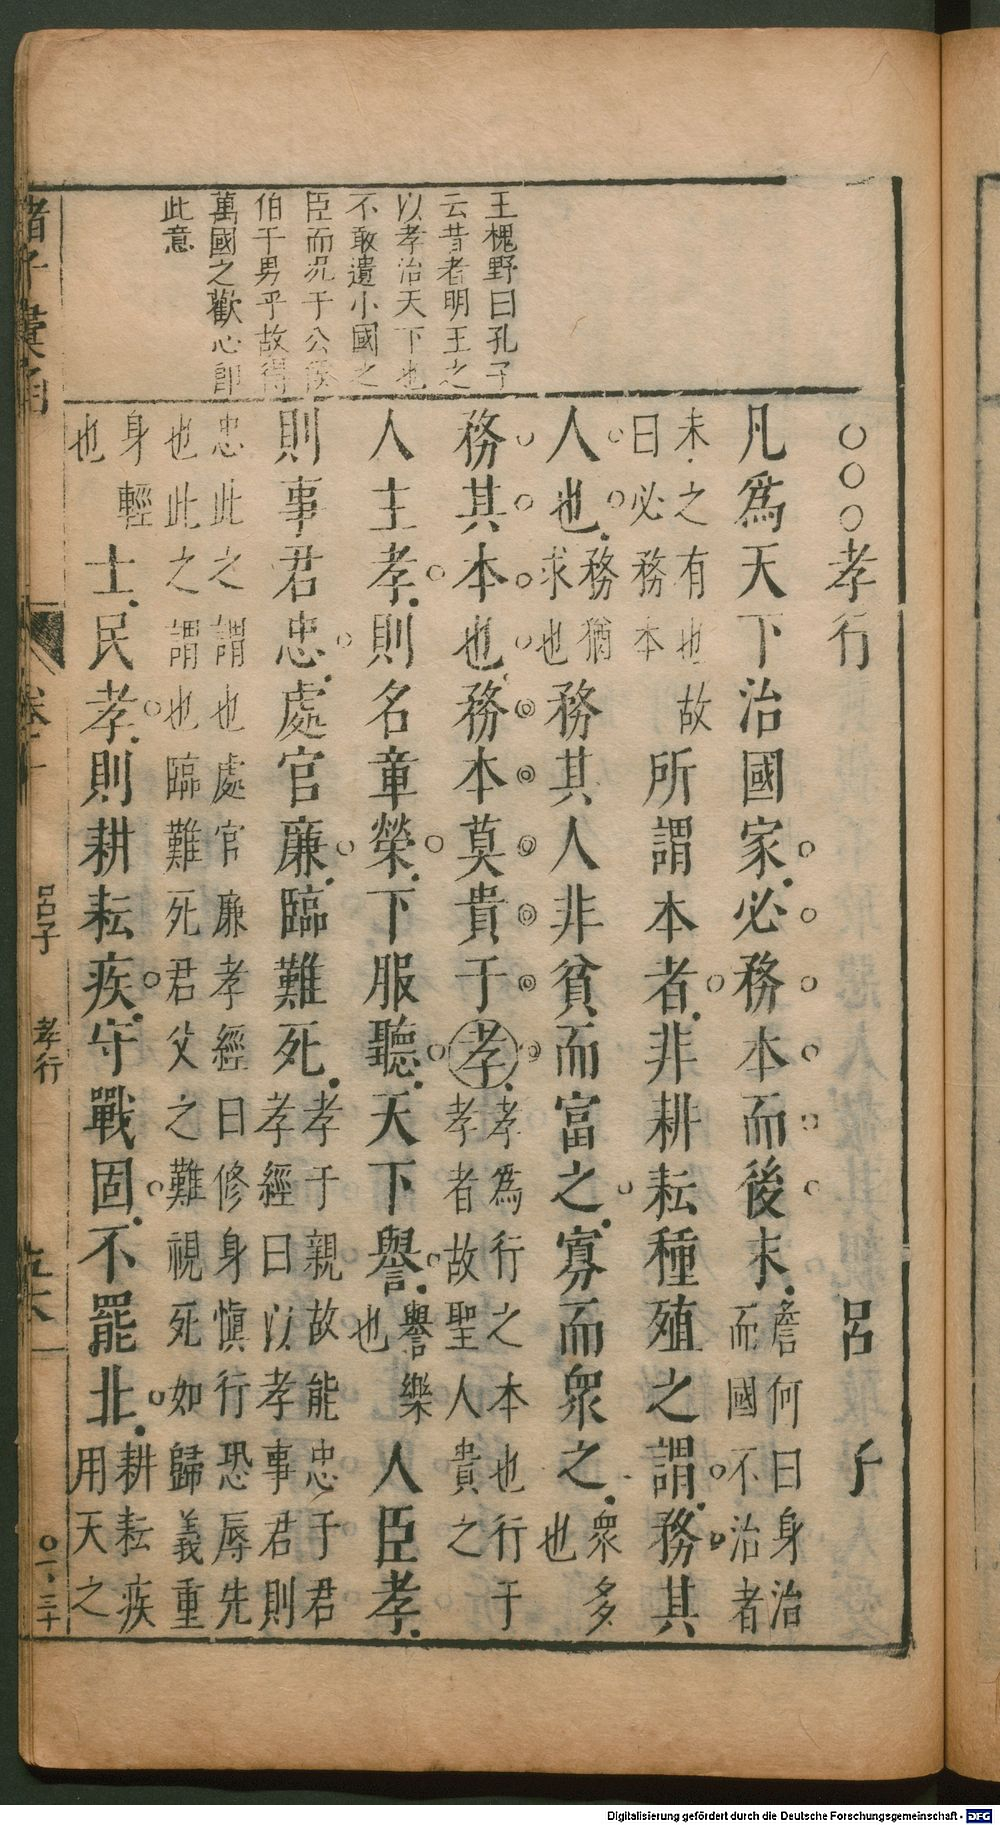 王槐野曰孔子
云昔者明王之
以孝治天下也
不敢遺小國之
臣而况于公侯
伯子男乎故得
萬國之歡心即
此意
○○○孝行 呂子
凡爲天下治國家必務本而後末詹何曰身治
而國不治者
未之有也故
曰必務本
所謂本者非耕耘種殖之謂務其
人也務猶
求也
務其人非貧而富之寡而衆之衆多
也
務其本也務本莫貴于孝孝爲行之本也行于
孝者故聖人貴之
人主孝則名章榮下服聽天下譽譽樂
也
人臣孝
則事君忠處官廉臨難死孝于親故能忠于君
孝經曰以孝事君則
忠此之謂也處官廉孝經曰修身愼行恐辱先
也此之謂也臨難死君父之難視死如歸義重
身輕
也
士民孝則耕耘疾守戰固不罷北耕耘疾
用天之
諸子彙函
卷十
呂子 孝行
五六
○一、三十
Digitalisierung gefördert durch die Deutsche Forschungsgemeinschaft - DFG